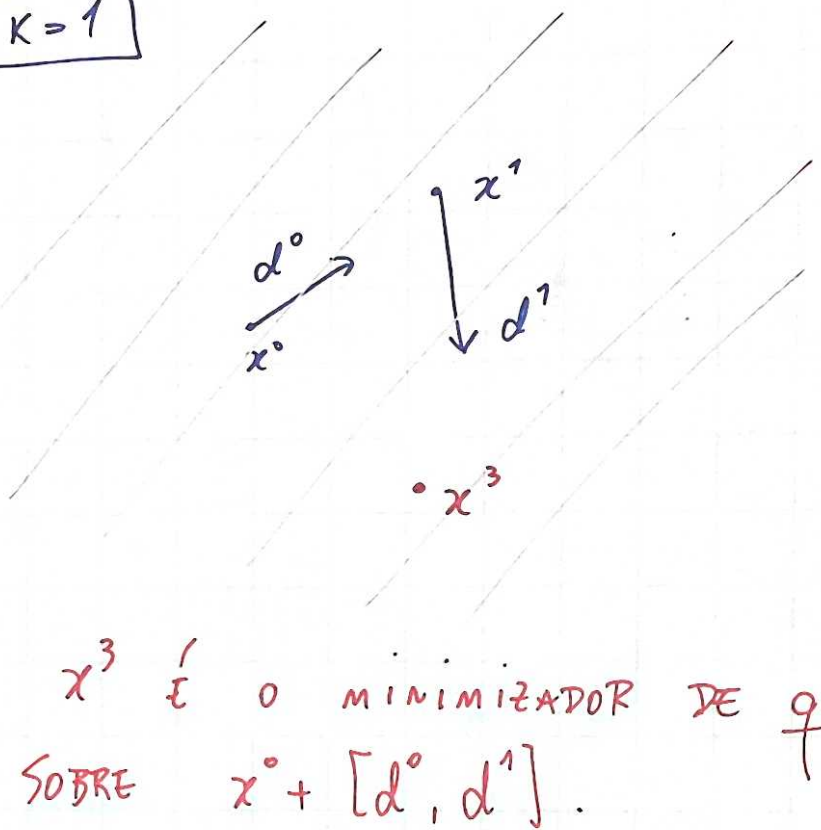 K = 1
x¹
d⁰
d¹
x⁰
x³
x³ É O MINIMIZADOR DE q
SOBRE x⁰ + [d⁰, d¹].